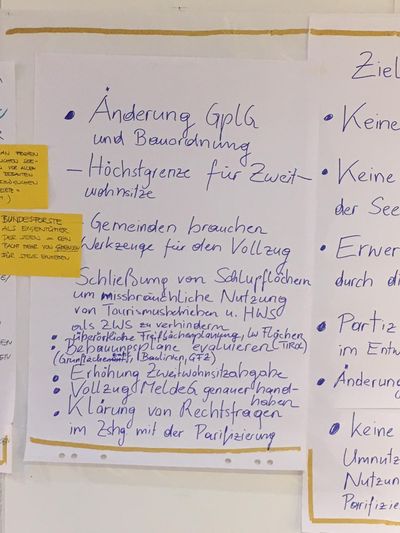 • Änderung GplG
und Bauordnung
– Höchstgrenze für Zweit-
wohnsitze
- Gemeinden brauchen
Werkzeuge für den Vollzug
Schließung von Schlupflöchern
um missbräuchliche Nutzung
von Tourismusbetrieben u. HWS
als ZWS zu verhindern
• überörtliche Freiflächenplanung, LW Flächen
• Bebauungspläne evaluieren (TIROL)
(Baulinien, GFZ)
• Erhöhung Zweitwohnsitzabgabe
• Vollzug MeldeG genauer hand-
haben
• Klärung von Rechtsfragen
im Zshg mit der Parifizierung
BUNDESFORSTE
ALS EIGENTÜMER
DER SEEN
FÜR STEGE
Ziel
• Keine
• Keine
der See
• Erwer
durch di
• Partiz
im Entw
• Änderung
• Keine
Umnutz
Nutzun
Parifizie